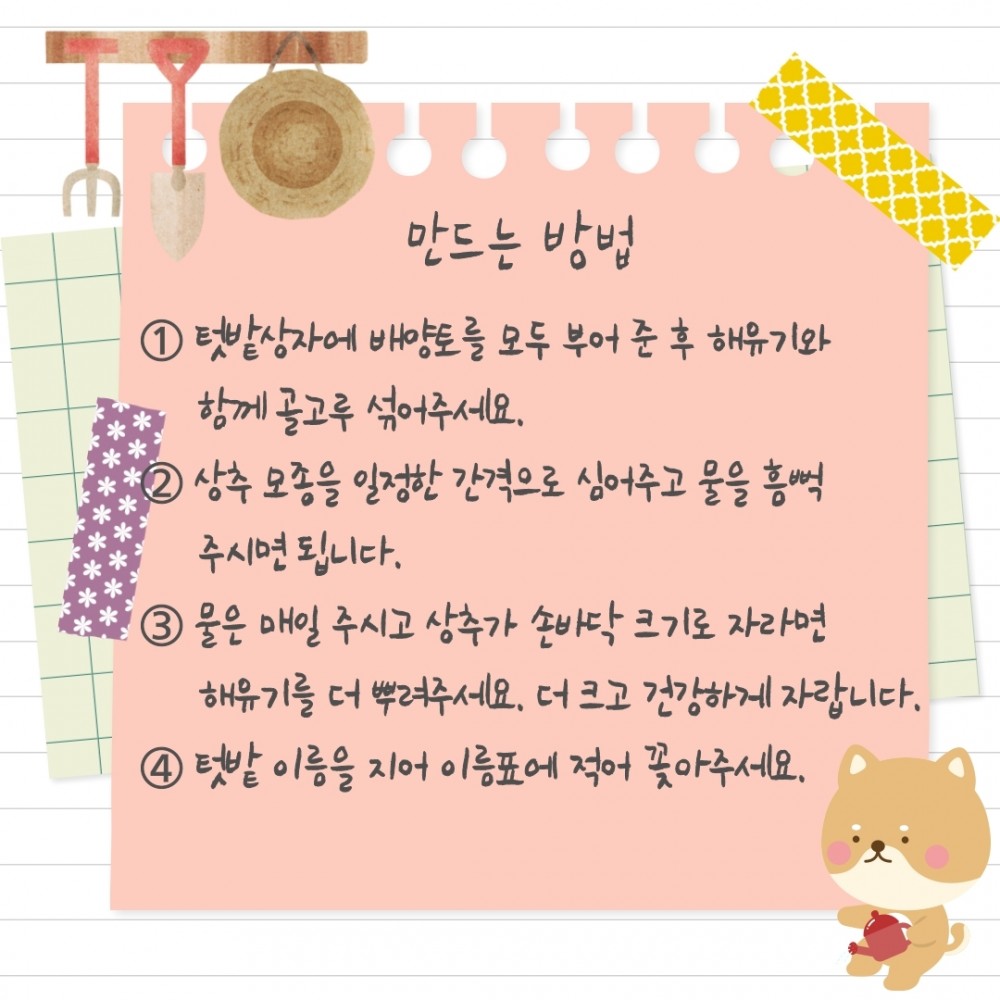 만드는 방법
① 텃밭상자에 배양토를 모두 부어 준 후 해유기와
함께 골고루 섞어주세요.
② 상추 모종을 일정한 간격으로 심어주고 물을 흠뻑
주시면 됩니다.
③ 물은 매일 주시고 상추가 손바닥 크기로 자라면
해유기를 더 뿌려주세요. 더 크고 건강하게 자랍니다.
④ 텃밭 이름을 지어 이름표에 적어 꽃아주세요.